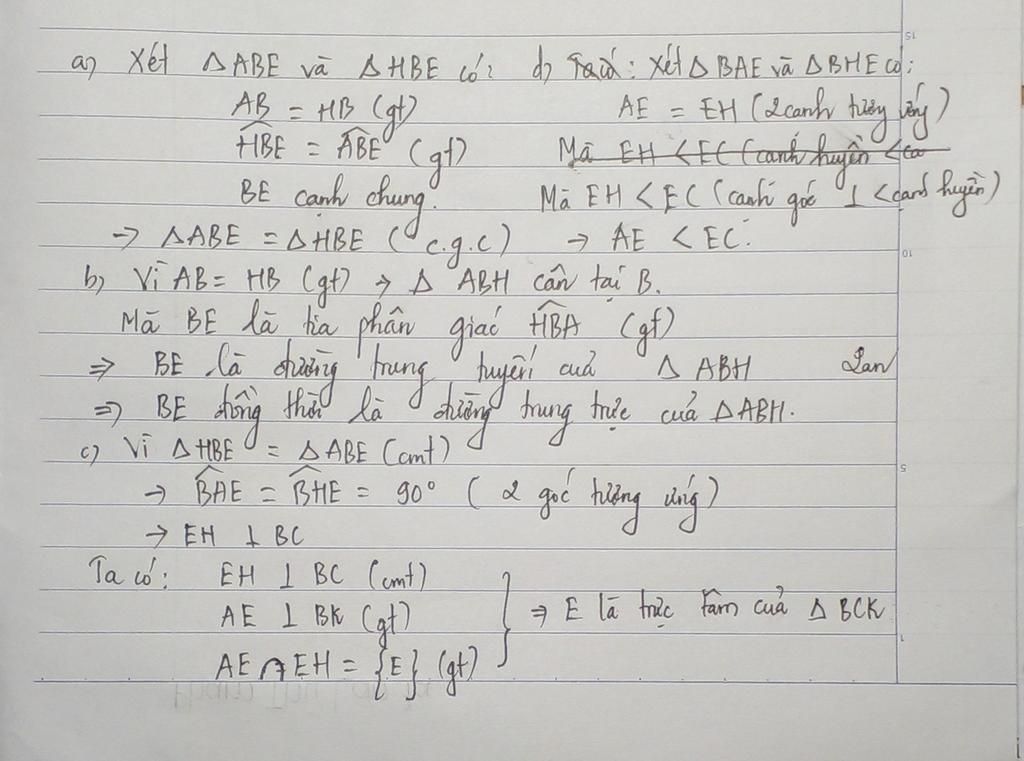 a) Xét ΔABE và ΔHBE có:
AB = HB (gt)
HBE = ABE (gt)
BE cạnh chung.
→ ΔABE = ΔHBE (c.g.c)
d) Ta có: Xét ΔBAE và ΔBHE có:
AE = EH (2 cạnh tương ứng)
Mà EH < EC (cạnh huyền < cạ
Mà EH < EC (cạnh góc ⊥ < cạnh huyền)
→ AE < EC.
b) Vì AB = HB (gt) → Δ ABH cân tại B.
Mà BE là tia phân giác HBA (gt)
⇒ BE là đường trung tuyến của Δ ABH
Lan
⇒ BE đồng thời là đường trung trực của ΔABH.
c) Vì ΔHBE = ΔABE (cmt)
→ BAE = BHE = 90° (2 góc tương ứng)
→ EH ⊥ BC
Ta có: EH ⊥ BC (cmt)
AE ⊥ BK (gt)
AE ∩ EH = {E} (gt)
⇒ E là trực tâm của Δ BCK
15
10
5
1